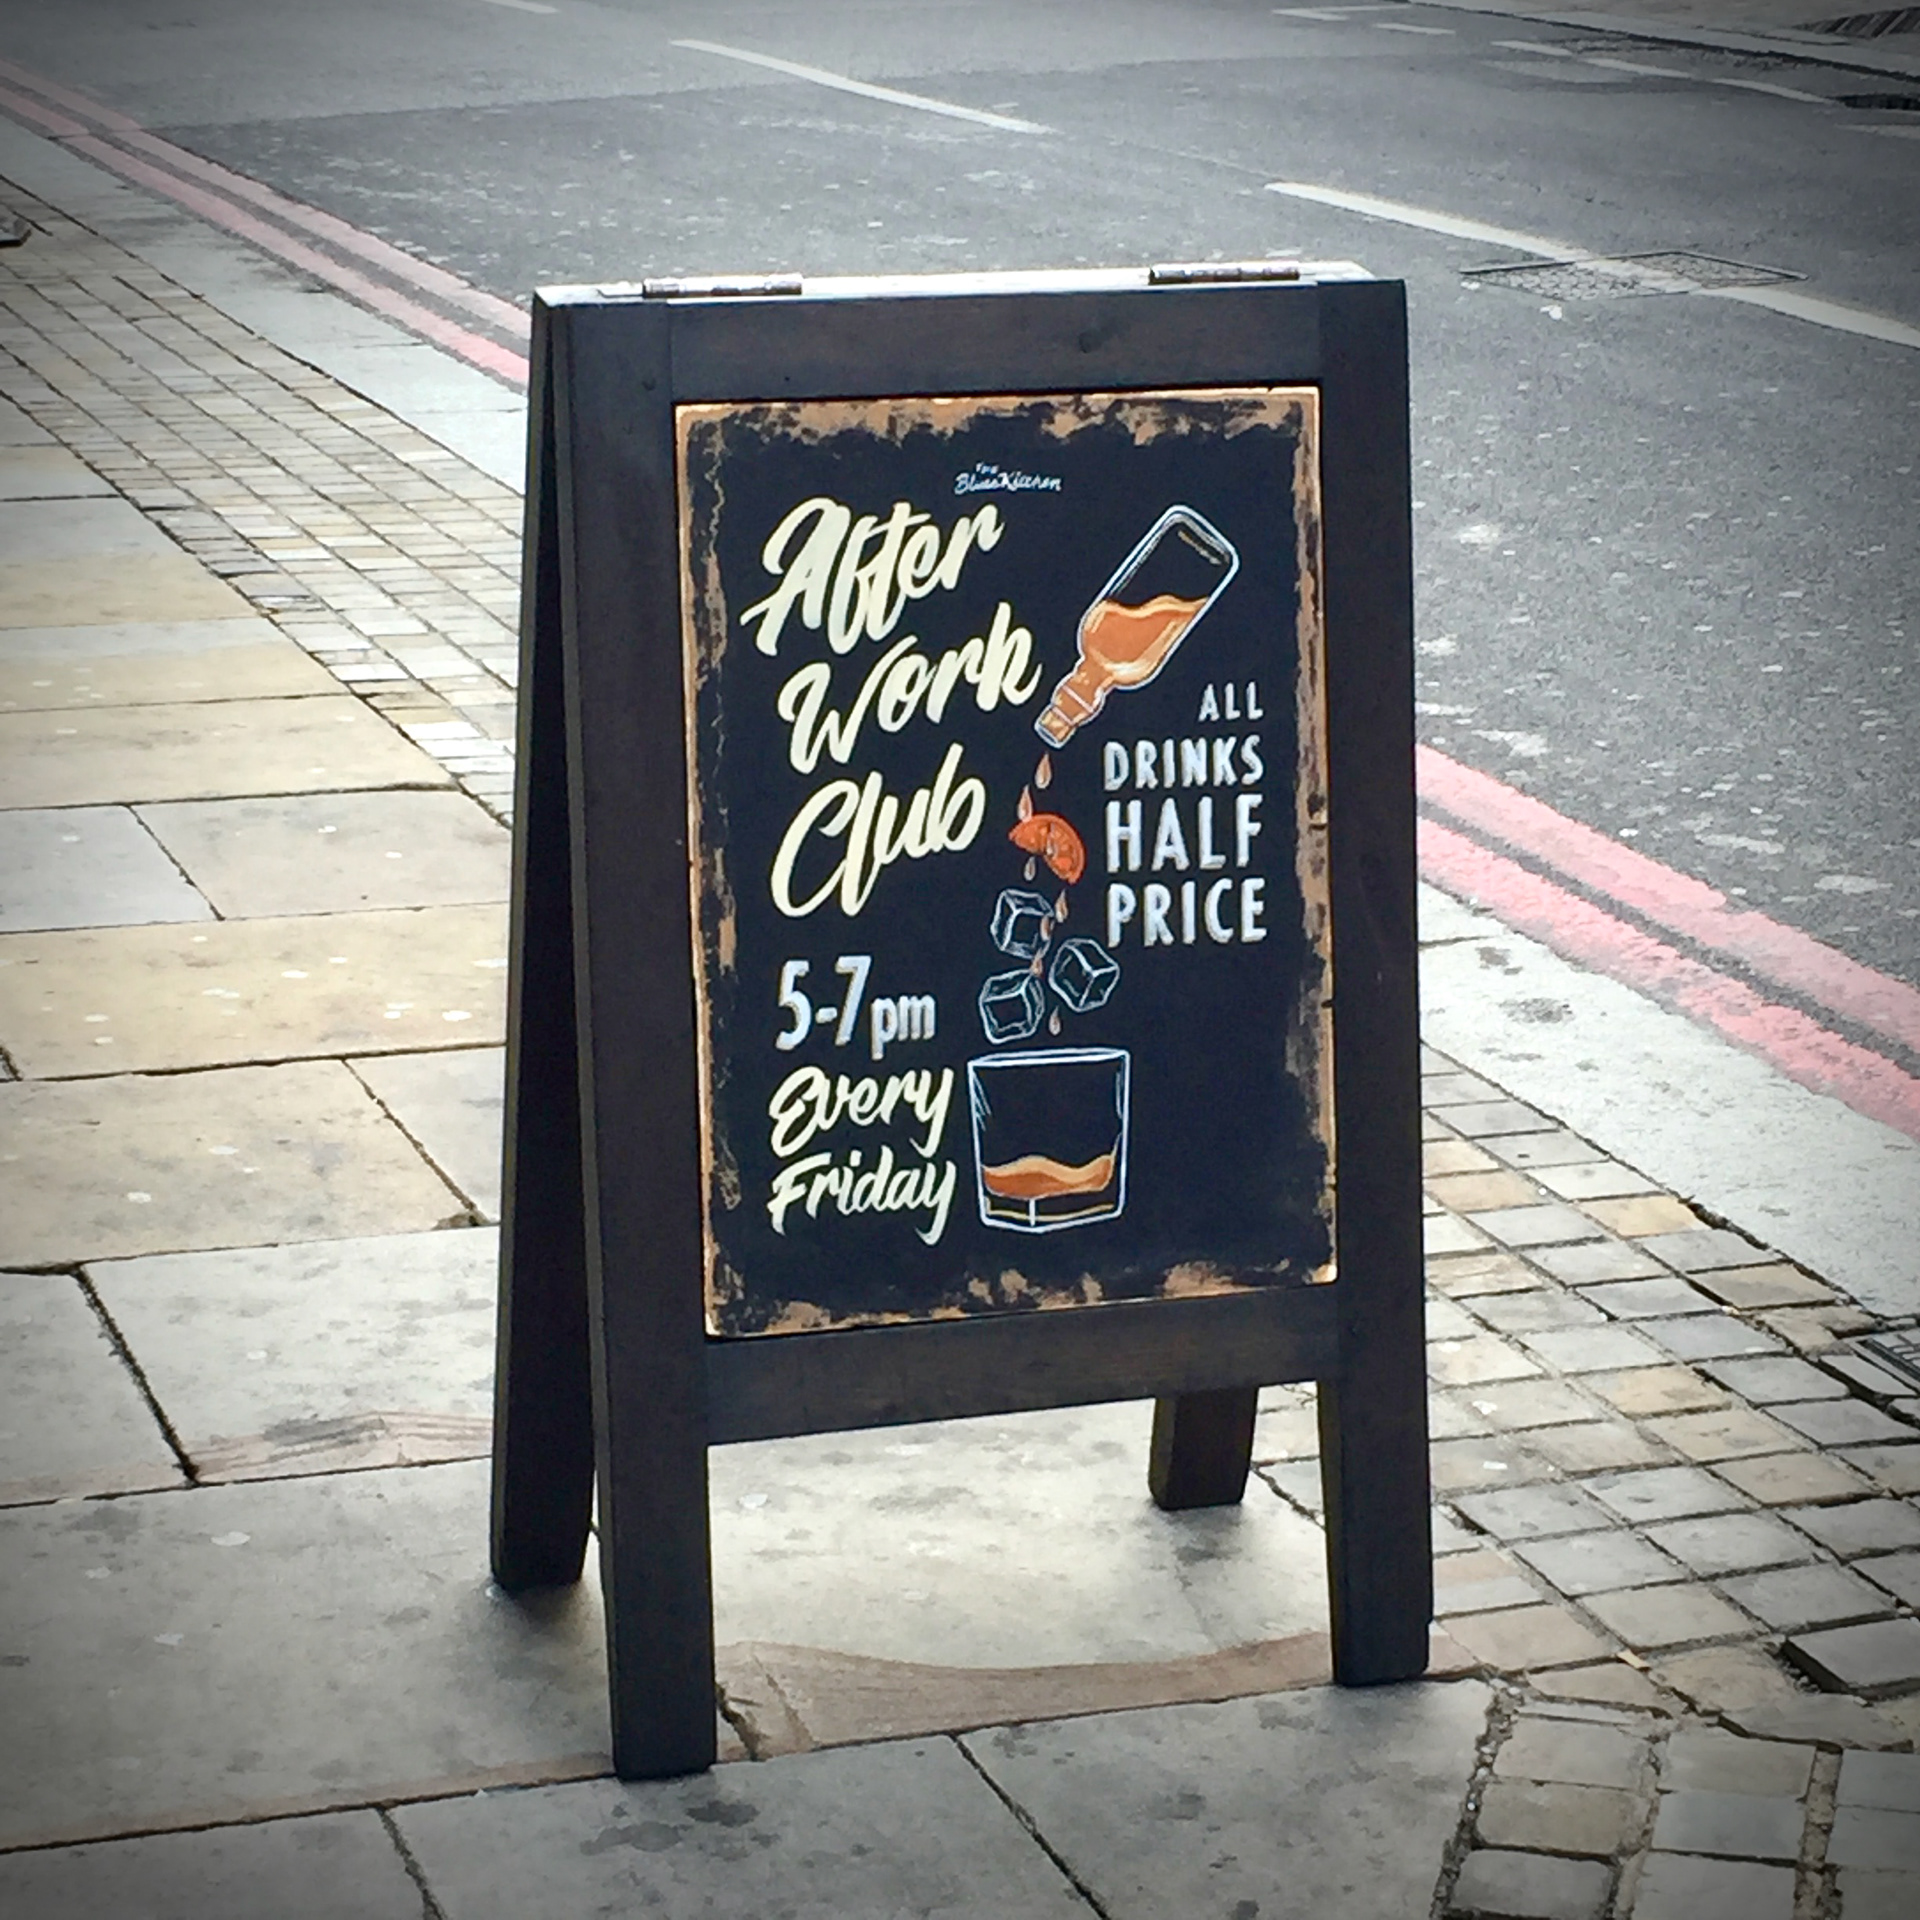 The
Blues Kitchen
After
Work
Club
ALL
DRINKS
HALF
PRICE
5-7pm
Every
Friday